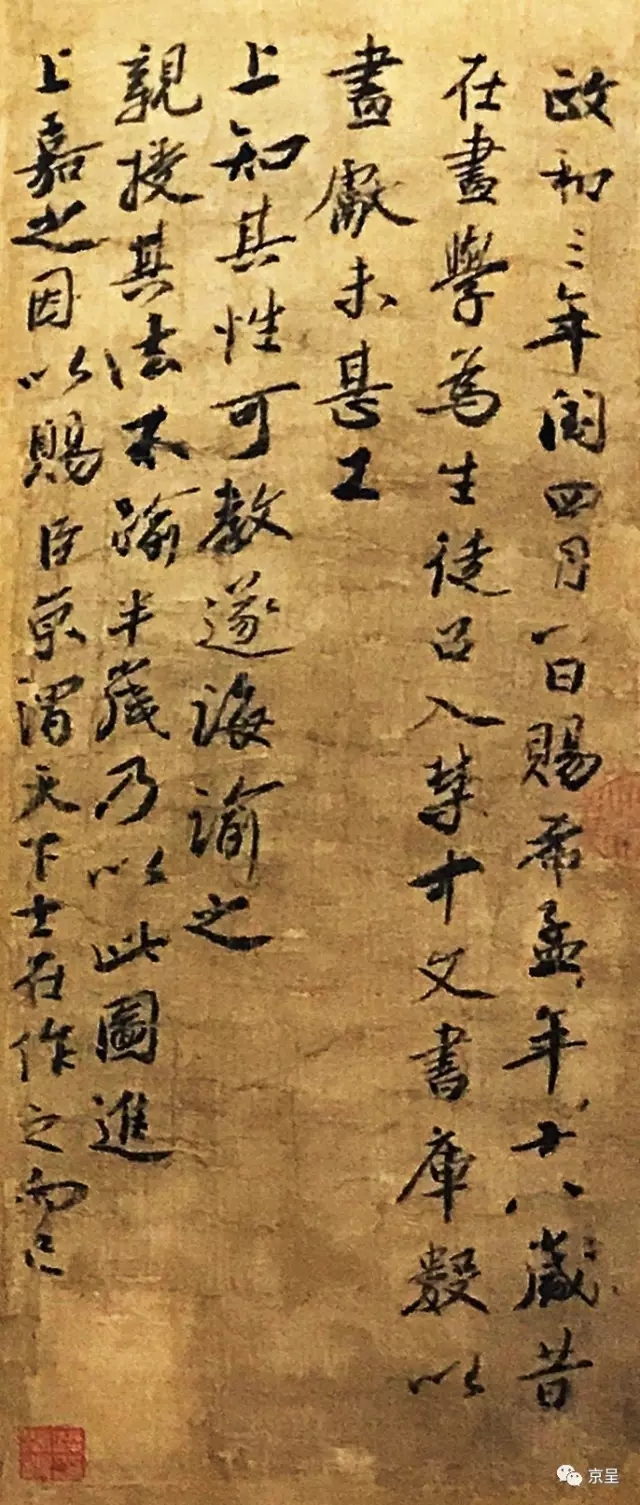 政和三年閏四月一日賜希孟年十八歲昔
在畫學為生徒召入禁中文書庫數以
畫獻未甚工
上知其性可教遂誨諭之
親授其法不踰半歲乃以此圖進
上嘉之因以賜臣京謂天下士在作之而已
京呈